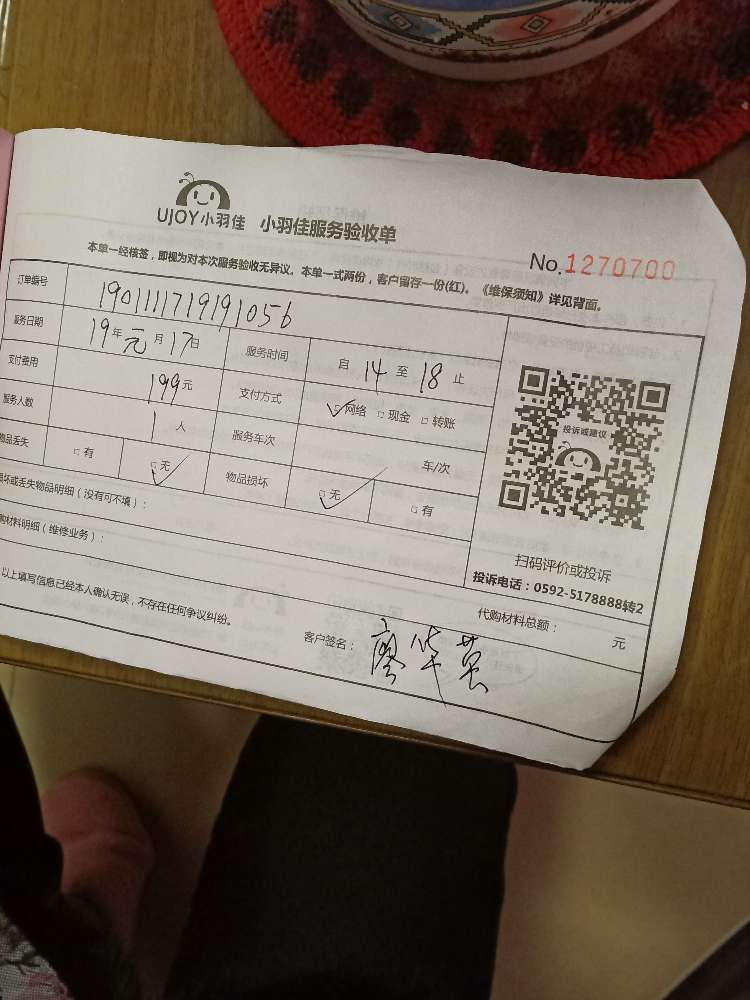 UJOY小羽佳 小羽佳服务验收单
No.1270700
本单一经核签，即视为对本次服务验收无异议。本单一式两份，客户留存一份(红)。《维保须知》详见背面。
订单编号 1901111719191056
服务日期 19年元月17日 服务时间 自 14 至 18 止
支付费用 199元 支付方式 □网络 □现金 □转账
服务人数 1人 服务车次 车/次
物品丢失 □有 □无 物品损坏 □无 □有
损坏或丢失物品明细（没有可不填）：
购材料明细（维修业务）：
代购材料总额： 元
以上填写信息已经本人确认无误，不存在任何争议纠纷。
客户签名：廖华英
投诉或建议
扫码评价或投诉
投诉电话：0592-5178888转2